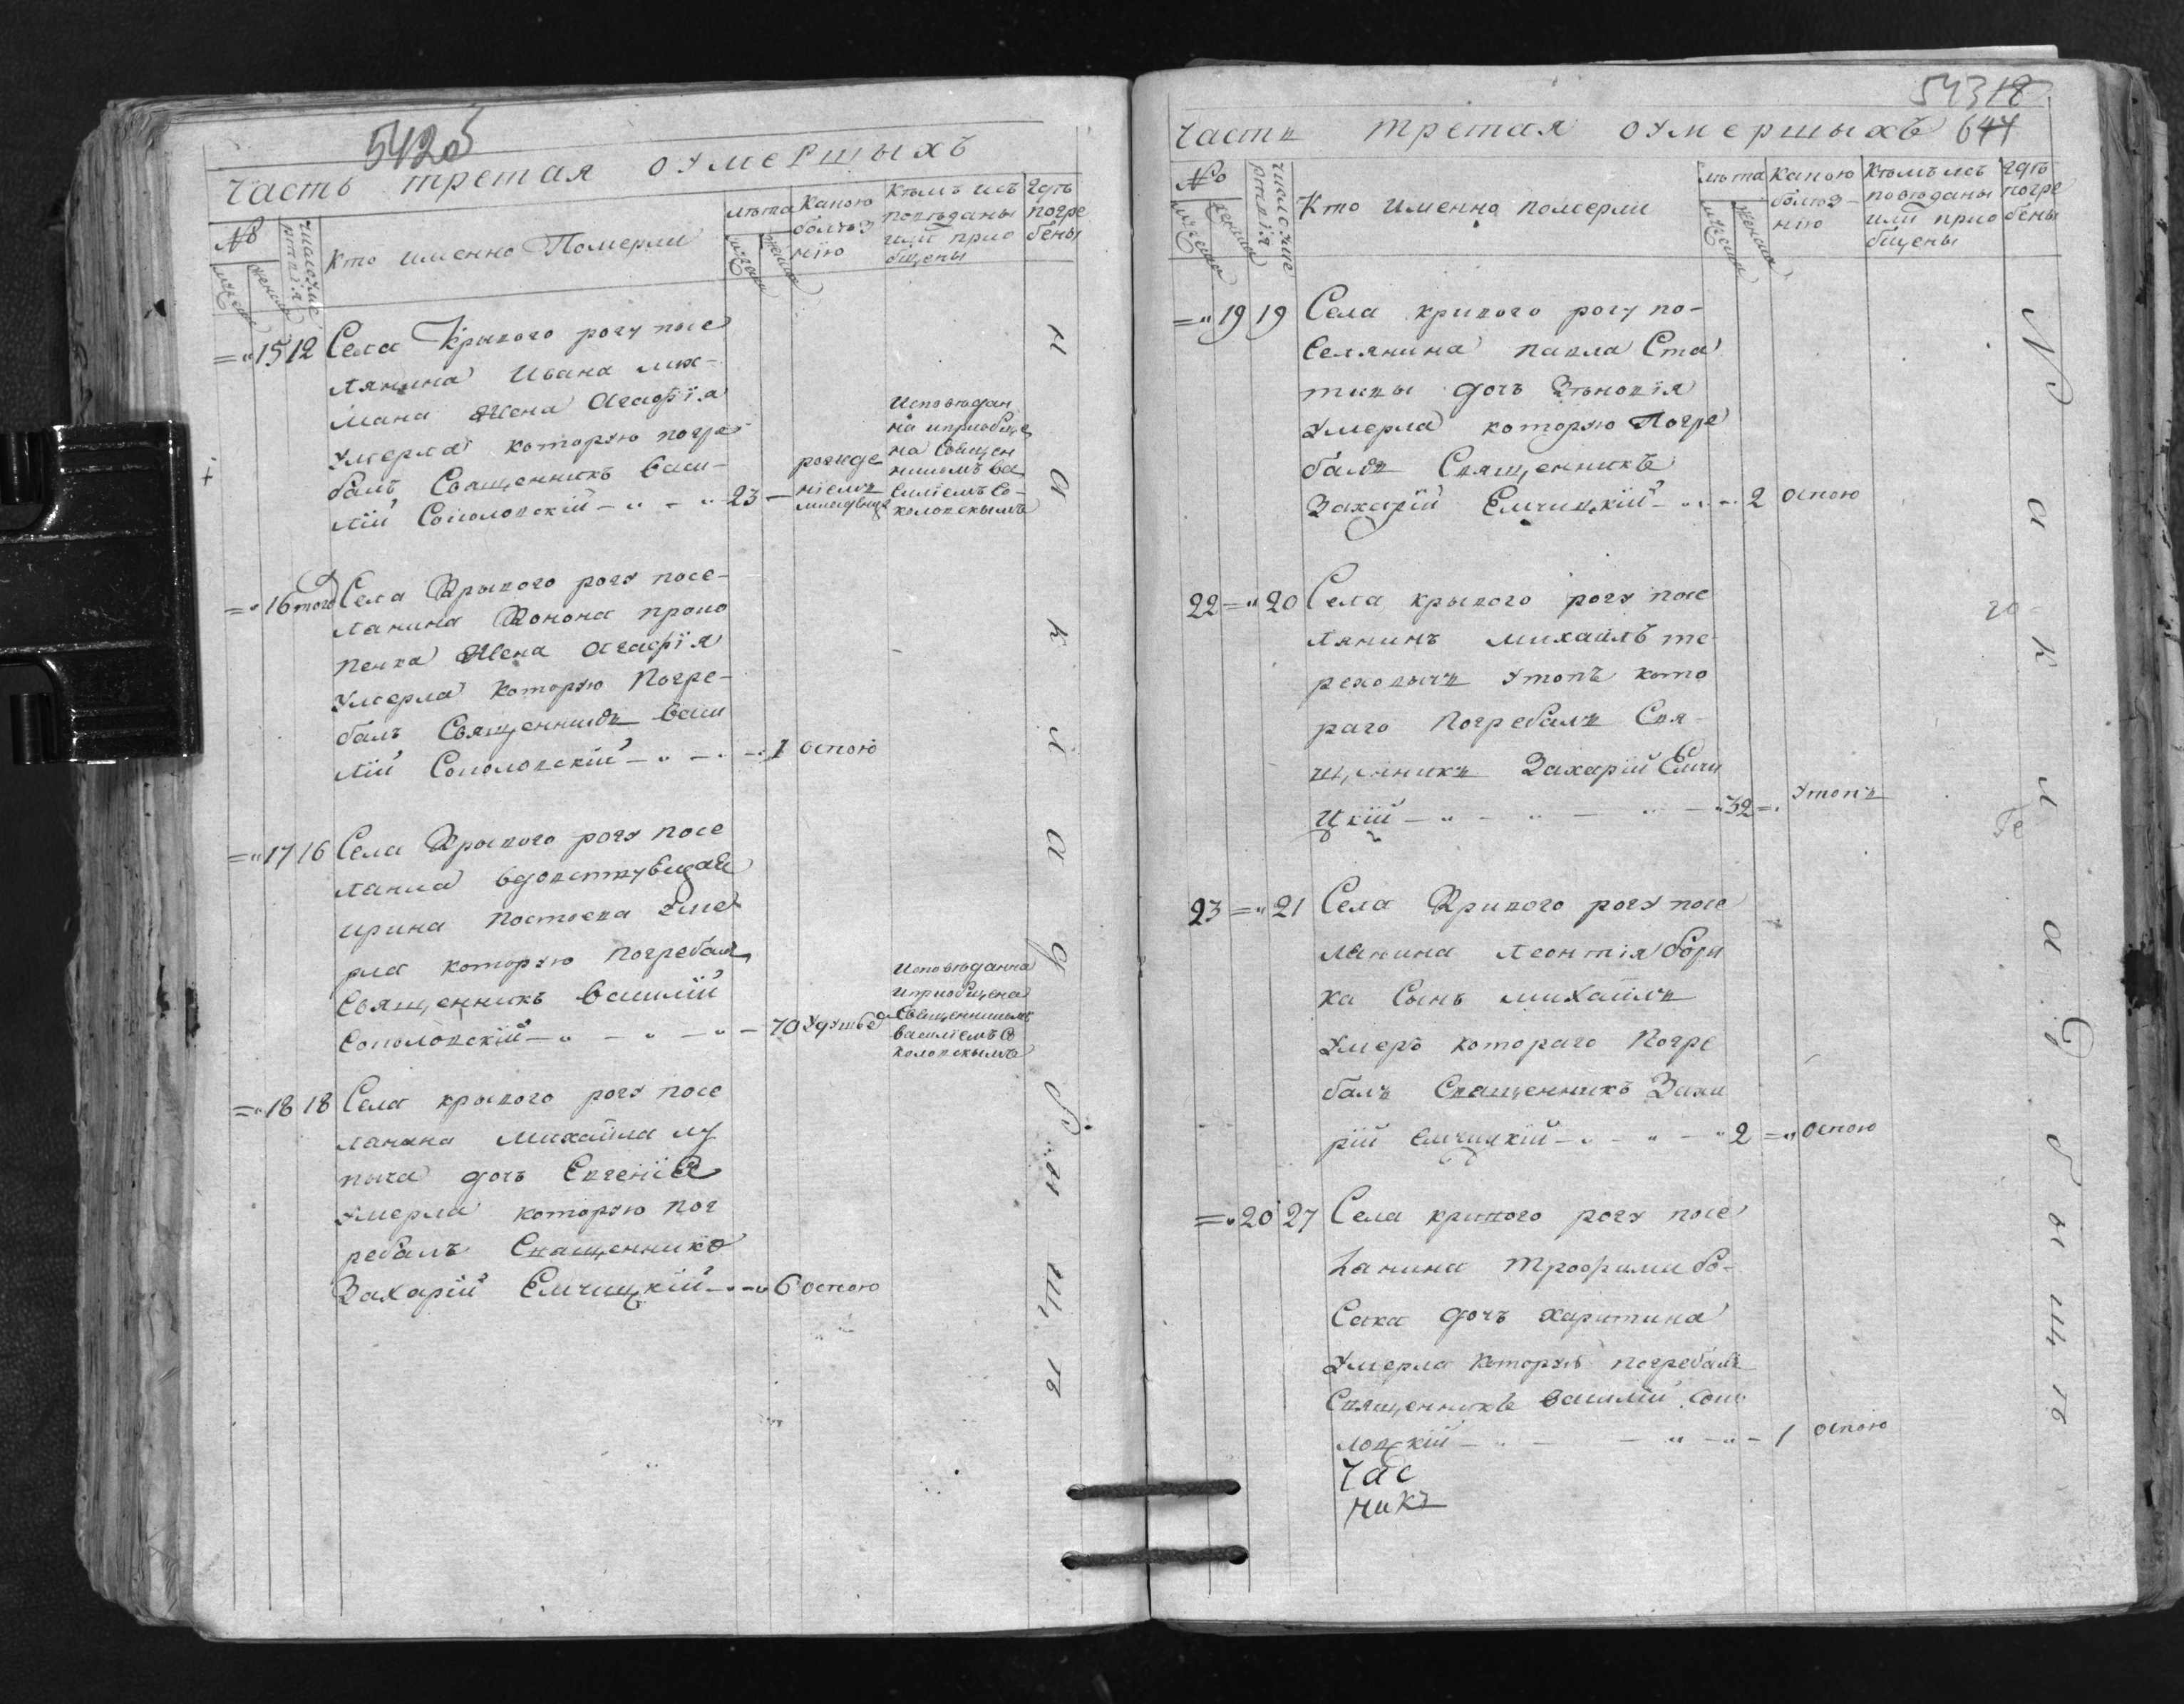 542об
Часть третая оумершыхъ
№
мужеска
женска
число уме
ртвія
Кто именно Померли
лѣта
мужеска
женска
Какою
болѣз
нію
Кѣмъ исъ
повѣданы
или прио
бщены
гдѣ
погре
бены
=„ 15 12 Села Крывого рогу посе
лянина Ивана лих-
мана Жена Агафія
Умерла которую погре
балъ Священникъ Васи-
лій Соколовскій 23
рожде
ніемъ
младенца
Исповѣдан
на иприобще
на Священ
никомъ Ва
силіемъ Со-
коловскымъ
=„ 16 того Села Крывого рогу посе-
лянина Конона проко
пенка Жена Агафія
Умерла Которую Погре-
балъ Священникъ Васи
лій Соколовскій 1 оспою
=„ 17 16 Села Крывого рогу посе
лянка вдовствующая
ирина Костоева уме
рла которую погребалъ
Священникъ Василій
Соколовскій 70 Удушье
Исповѣданна
иприобщена
Священникомъ
василіемъ Со
коловскымъ
=„ 18 18 Села крывого рогу посе
лянина Михайла лу
пыча дочъ Евгенія
Умерла которую пог
ребалъ Священникъ
Захарій Емчицкій 6 оспою
н а к л а д б и щ ѣ
54318
644
Часть третая оумершыхъ
№
мужеска
женска
число уме
ртвія
Кто именно померли
лѣта
мужеска
женска
Какою
болѣз-
нію
Кѣмъ исъ
повѣданы
или прио
бщены
гдѣ
погре
бены
=„ 19 19 Села кривого рогу по-
селянина павла Ста
тивы дочъ Зѣновія
Умерла которую Погре
балъ Священникъ
Захарій Емчицкій 2 оспою
22 =„ 20 Села крывого рогу посе
лянинъ михаилъ те
реховычъ Утопъ кото
раго Погребалъ Свя-
щенникъ Захарій Емчи
цкій 32 =„ Утопъ
23 =„ 21 Села Кривого рогу посе
лянина Леонтія боря
ка Сынъ михайлъ
Умеръ котораго Погре
балъ Священникъ Заха
рій емчицкій 2 =„ Оспою
=„ 20 27 Села кривого рогу посе
лянина Трофима бо-
Сака дочъ харитина
Умерла Которую погребалъ
Священникъ Василій Соко
ловскій 1 оспою
Час
никъ
Н а к л а д б ы щ ѣ